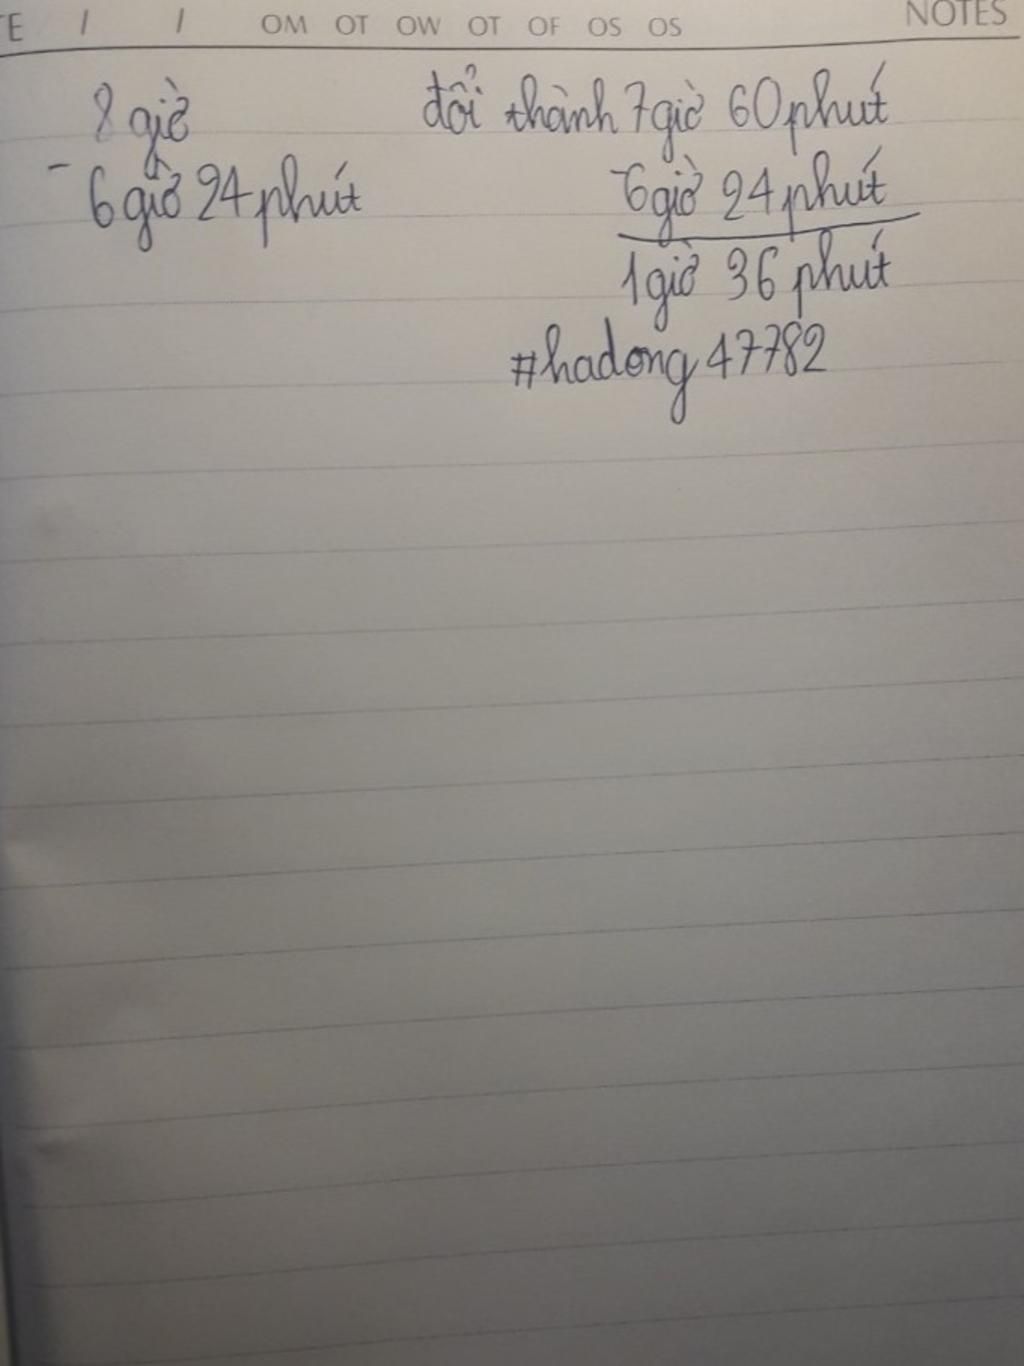 E / / OM OT OW OT OF OS OS NOTES
8 giờ đổi thành 7 giờ 60 phút
- 6 giờ 24 phút - 6 giờ 24 phút
1 giờ 36 phút
#hadong47782